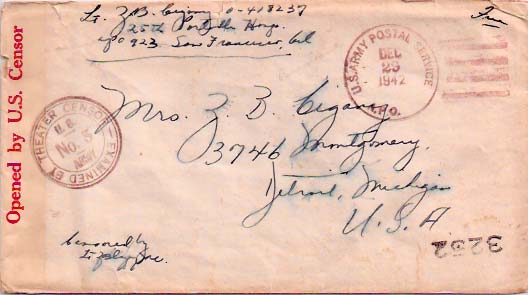 Lt. Z.B. O-418237
25th Hosp.
APO 923 San Francisco, Cal
Free
U.S. ARMY POSTAL SERVICE
DEC
28
1942
A.P.O.
Opened by U.S. Censor
EXAMINED BY THEATER CENSOR
U.S.
No. 5
ARMY
Mrs. Z. B. Cigany
3746 Montgomery
Detroit, Michigan
U. S. A
Censored by
Lt.
3252